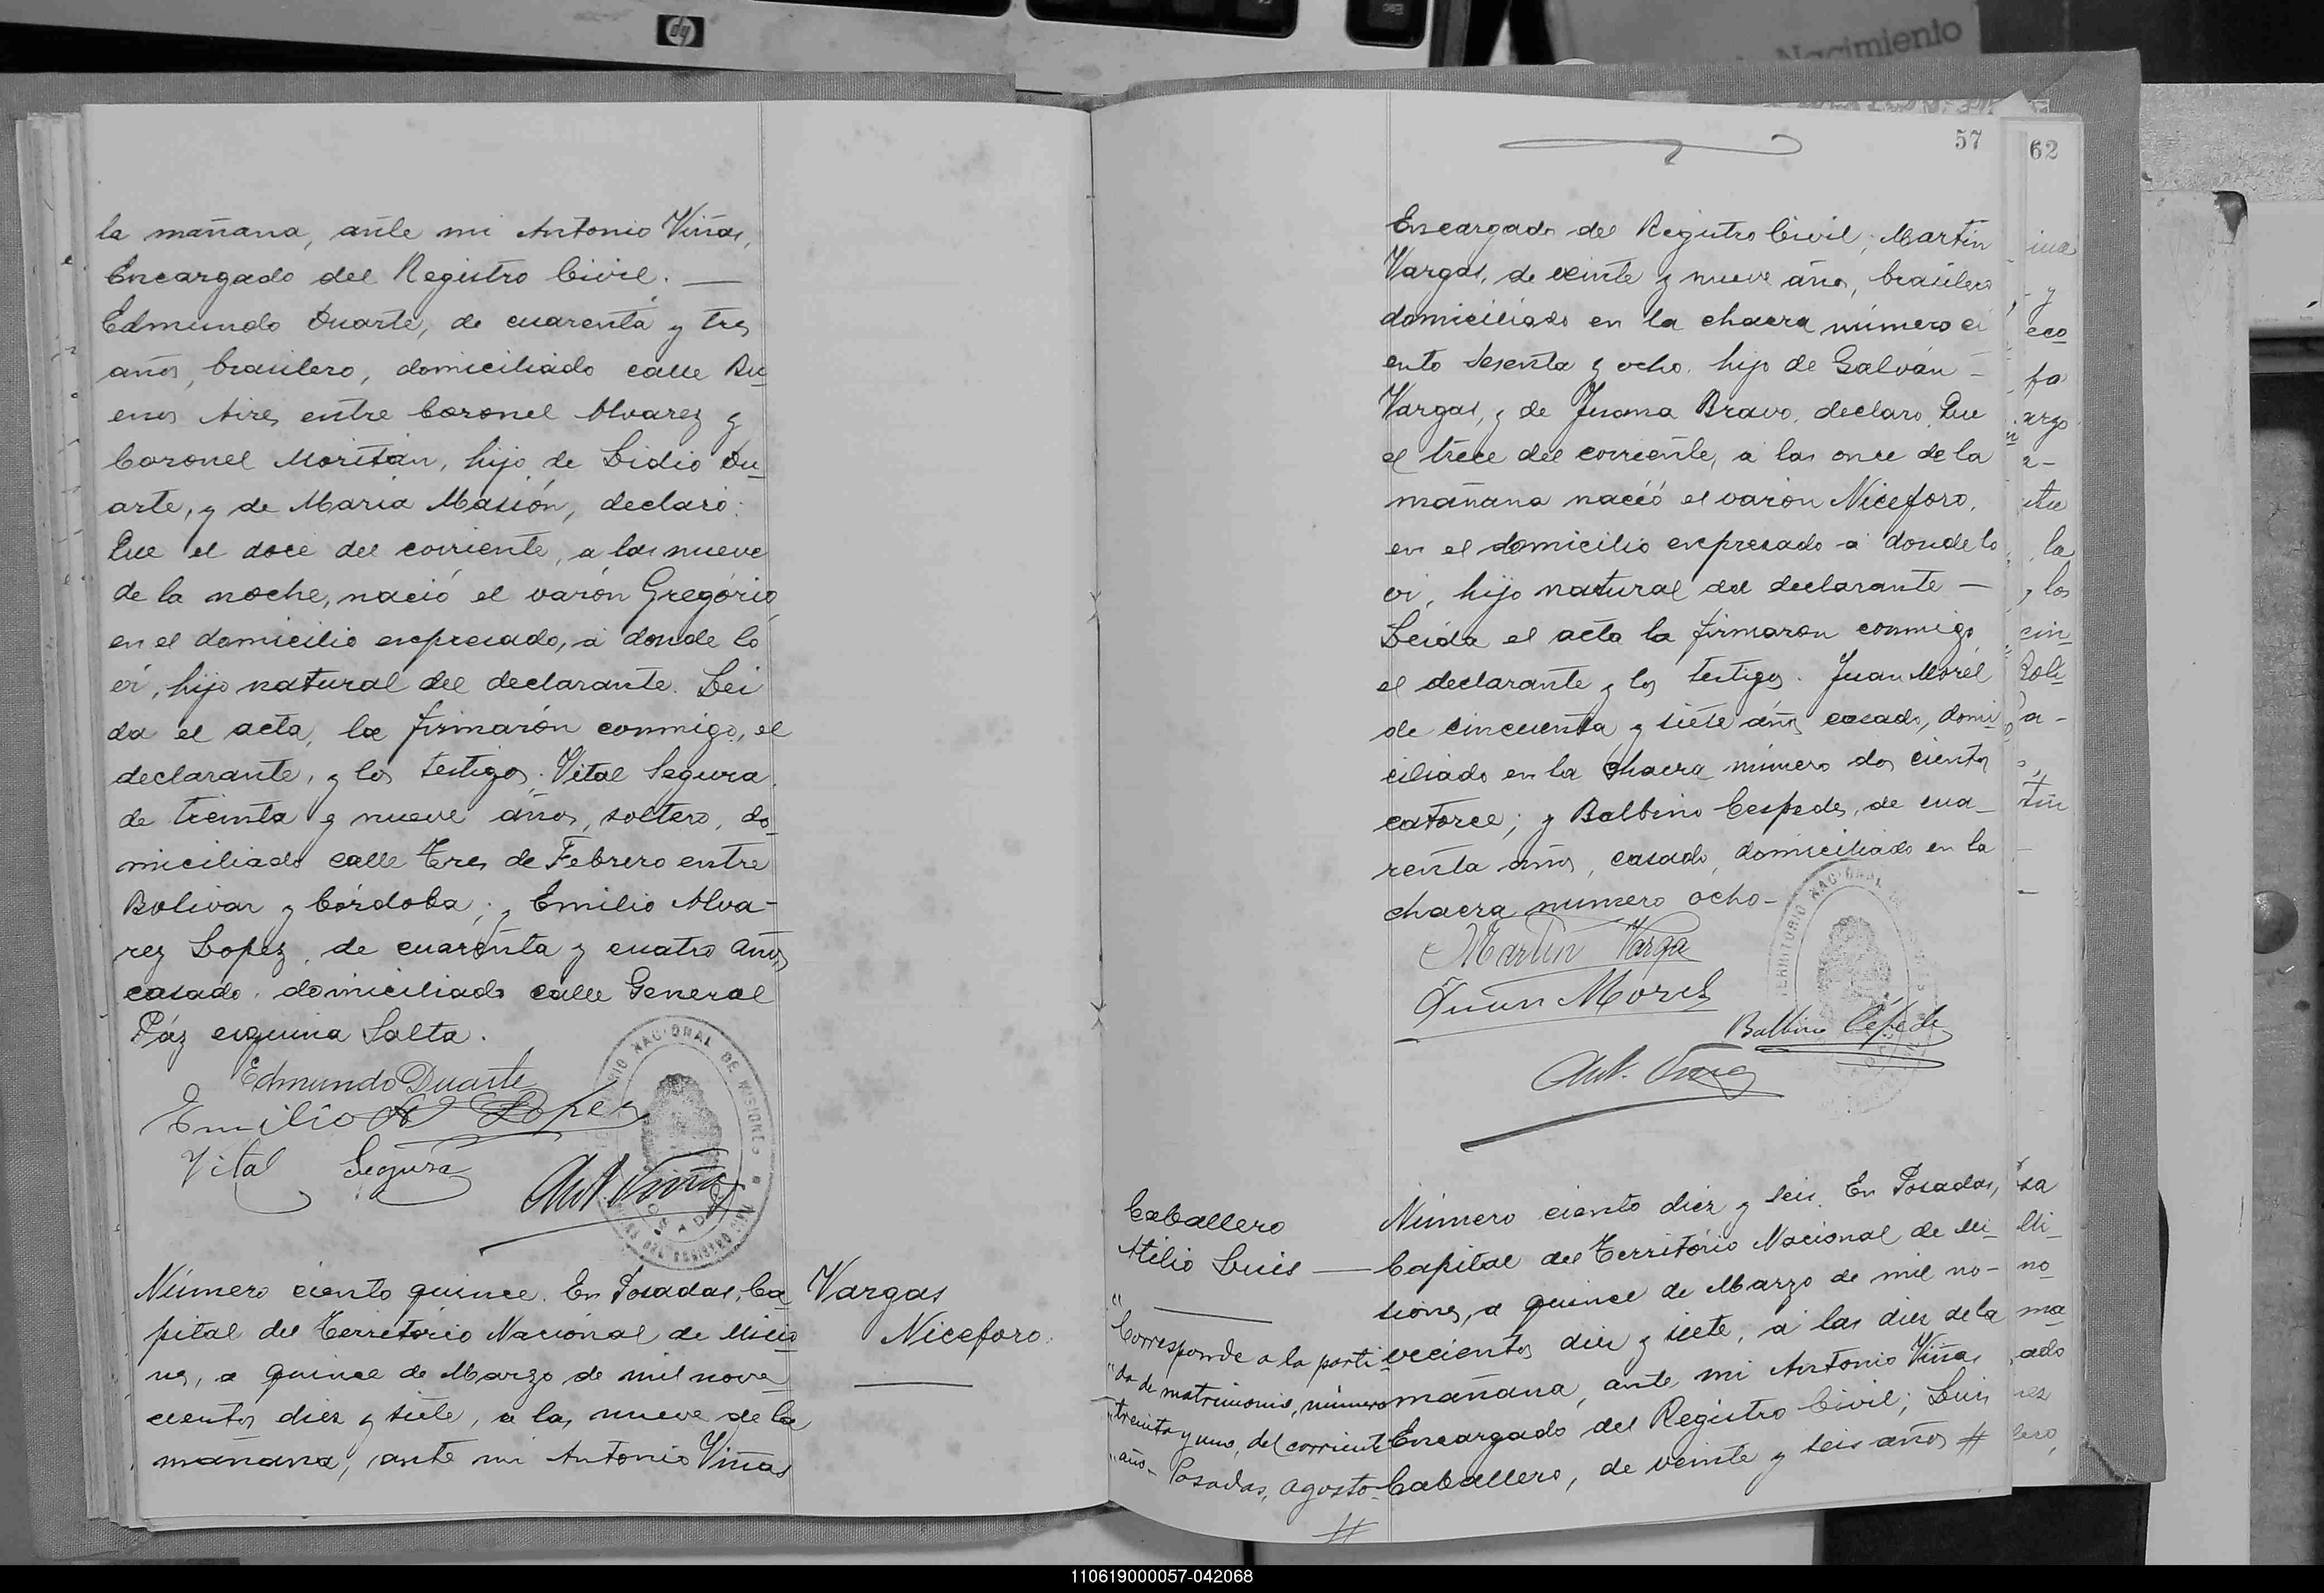 hp
Nacimiento
la mañana, ante mi Antonio Viñas,
Encargado del Registro Civil. —
Edmundo Duarte, de cuarenta y tres
años, brasilero, domiciliado calle Bu-
enos Aires entre Coronel Alvarez y
Coronel Moritán, hijo de Lidio Du-
arte, y de Maria Masión, declaró:
Que el doce del corriente, a las nueve
de la noche, nació el varón Gregório
en el domicilio expresado, a donde lo
vi, hijo natural del declarante. Lei
da el acta, la firmarón conmigo, el
declarante, y los testigos. Vital Segura
de treinta y nueve años, soltero, do-
miciliado calle Tres de Febrero entre
Bolivar y Córdoba; y Emilio Alva-
rez Lopez, de cuarenta y cuatro años
casado, domiciliado calle General
Páz esquina Salta.
Edmundo Duarte
Emilio A. Lopez
Vital Segura
Ant. Viñas
TERRITORIO NACIONAL DE MISIONES
POSADAS
Número ciento quince. En Posadas, Ca-
pital del Território Nacional de Misio
nes, a quince de Marzo de mil nove-
cientos diez y siete, a las nueve de la
mañana, ante mi Antonio Viñas
Vargas
Niceforo.
57
Encargado del Registro Civil; Martin
Vargas, de veinte y nueve años, brasilero
domiciliado en la chacra número ci
ento sesenta y ocho, hijo de Galván —
Vargas, y de Juana Bravo, declaro. Que
el trece del corriente, a las once de la
mañana nació el varón Niceforo,
en el domicilio expresado a donde lo
vi, hijo natural del declarante —
Leida el acta la firmaron conmigo
el declarante y los testigos. Juan Morel
de cincuenta y siete años casado, domi-
ciliado en la chacra número dos cientos
catorce; y Balbino Cespedes, de cua-
renta años, casado, domiciliado en la
chacra numero ocho —
Martin Varga
Juan Morel
Balbino Cépede
Ant. Viñas
TERRITORIO NACIONAL
Caballero
Atilio Luis —
"Corresponde a la parti-
"da de matrimonio, número
"treinta y uno, del corriente
"año — Posadas, agosto —
#
Número ciento diez y seis. En Posadas,
Capital del Território Nacional de Mi-
siones, a quince de Marzo de mil no-
vecientos diez y siete, a las diez de la
mañana, ante mi Antonio Viñas
Encargado del Registro Civil; Luis
Caballero, de veinte y seis años #
62
y
eco
fa
argo
a-
la
, los
cin-
Boli-
a-
tin
sa
Mi-
no-
ma
ado
nes
lero,
110619000057-042068